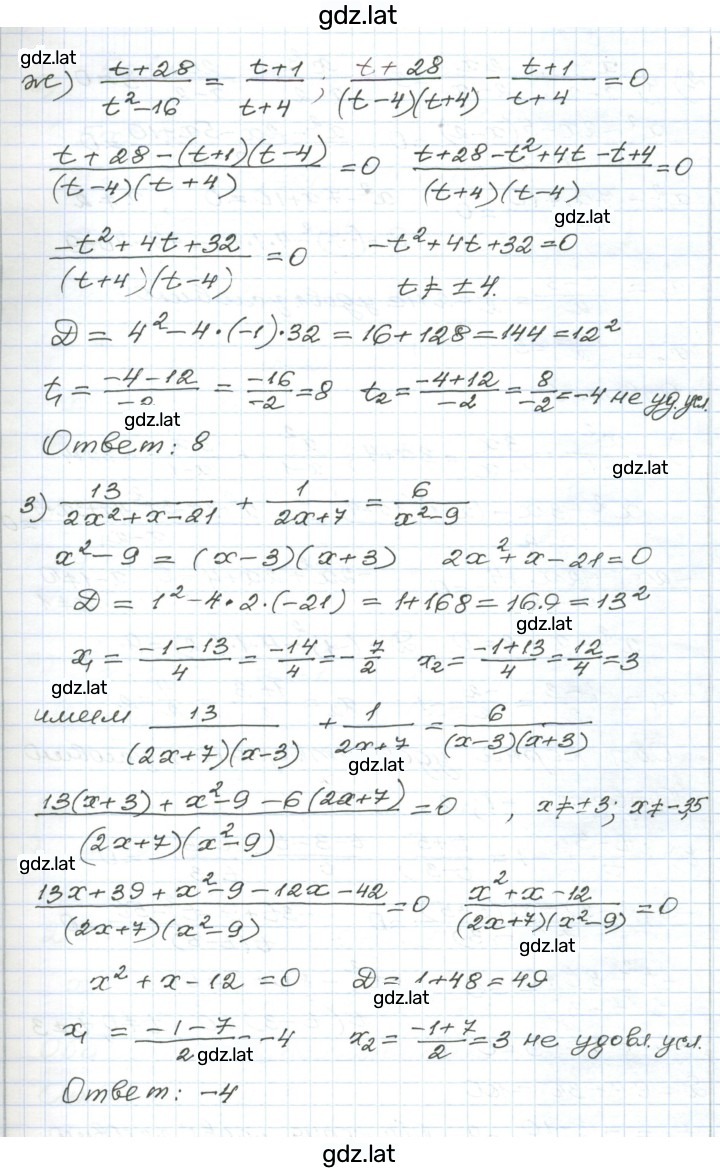 gdz.lat
gdz.lat
ж) (t+28)/(t²-16) = (t+1)/(t+4); (t+28)/((t-4)(t+4)) - (t+1)/(t+4) = 0
(t+28-(t+1)(t-4))/((t-4)(t+4)) = 0 (t+28-t²+4t-t+4)/((t+4)(t-4)) = 0
gdz.lat
(-t²+4t+32)/((t+4)(t-4)) = 0 -t²+4t+32=0
t ≠ ±4.
D = 4²-4·(-1)·32 = 16+128=144=12²
t₁ = (-4-12)/(-2) = (-16)/(-2) = 8 t₂ = (-4+12)/(-2) = 8/(-2) = -4 не уд. усл.
gdz.lat
Ответ: 8
gdz.lat
з) 13/(2x²+x-21) + 1/(2x+7) = 6/(x²-9)
x²-9 = (x-3)(x+3) 2x²+x-21=0
D = 1²-4·2·(-21) = 1+168=169=13²
gdz.lat
x₁ = (-1-13)/4 = (-14)/4 = -7/2 x₂ = (-1+13)/4 = 12/4 = 3
gdz.lat
имеем 13/((2x+7)(x-3)) + 1/(2x+7) = 6/((x-3)(x+3))
gdz.lat
(13(x+3)+x²-9-6(2x+7))/((2x+7)(x²-9)) = 0, x≠±3; x≠-3,5
gdz.lat
(13x+39+x²-9-12x-42)/((2x+7)(x²-9)) = 0 (x²+x-12)/((2x+7)(x²-9)) = 0
gdz.lat
x²+x-12=0 D=1+48=49
gdz.lat
x₁ = (-1-7)/2 = -4 x₂ = (-1+7)/2 = 3 не удовл. усл.
gdz.lat
Ответ: -4
gdz.lat